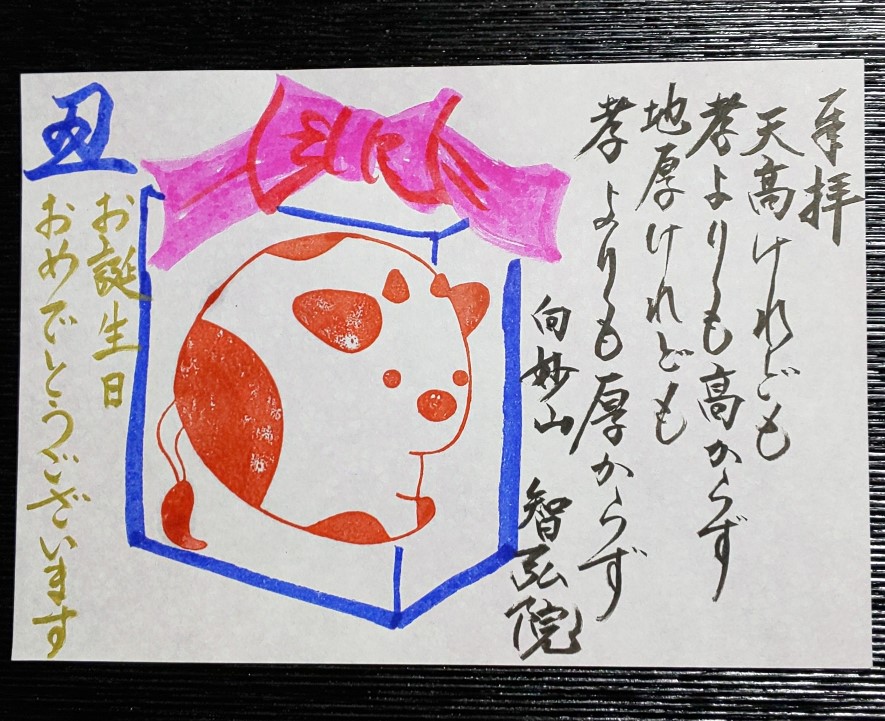 奉拝
天高けれども
孝よりも高からず
地厚けれども
孝よりも厚からず
向妙山 智弘院
丑
お誕生日
おめでとうございます